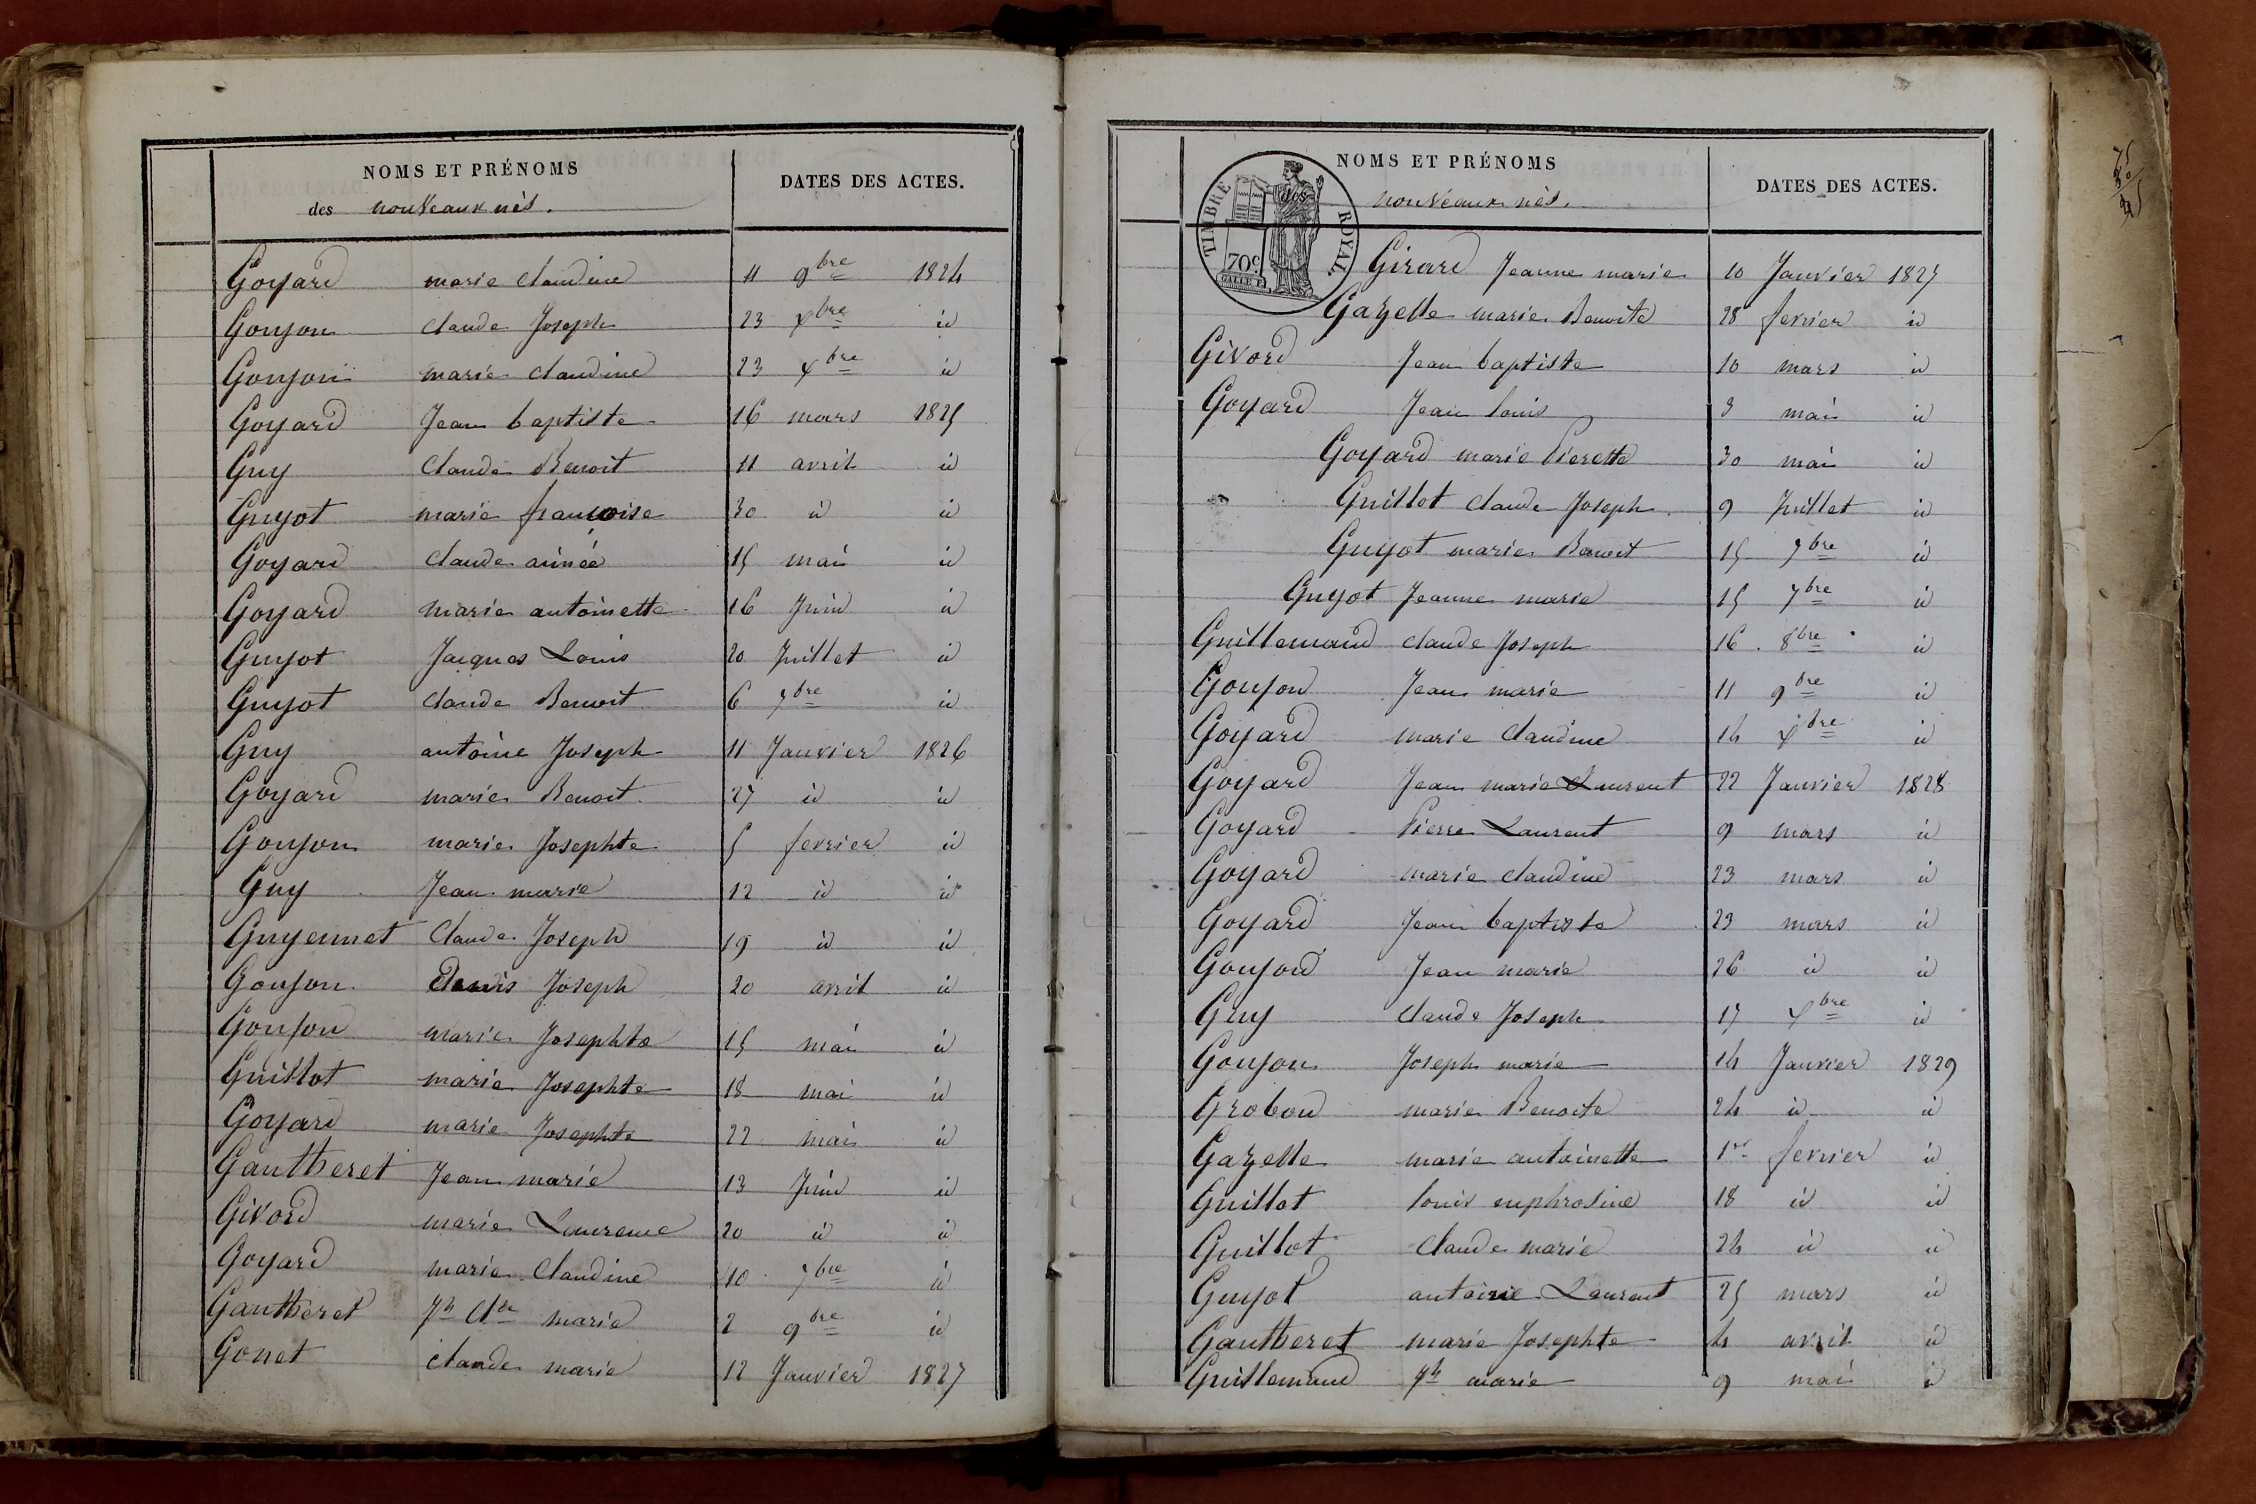 NOMS ET PRÉNOMS
des nouveaux nés.
DATES DES ACTES.
Goyard marie claudine 11 9bre 1824
Goujon claude Joseph 23 xbre id
Goujon marie claudine 23 xbre id
Goyard Jean baptiste 16 mars 1825
Guy claude Benoit 11 avril id
Guyot marie françoise 30 id id
Goyard claude aimée 15 mai id
Goyard marie antoinette 16 Juin id
Guyot Jacques Louis 20 Juillet id
Guyot claude Benoit 6 7bre id
Guy antoine Joseph 11 Janvier 1826
Goyard marie Benoit 27 id id
Goujon marie Josephte 5 fevrier id
Guy Jean marie 12 id id
Guyennet Claude Joseph 19 id id
Goujon Denis Joseph 20 avril id
Goujon marie Josephte 15 mai id
Guillot marie Josephte 18 mai id
Goyard marie Josephte 22 mai id
Gautheret Jean marie 13 Juin id
Givord marie Laurence 20 id id
Goyard marie Claudine 10 7bre id
Gautheret Jh Cde marie 2 9bre id
Gonet claude marie 12 Janvier 1827
NOMS ET PRÉNOMS
des nouveaux nés.
DATES DES ACTES.
TIMBRE ROYAL
70c
Girard Jeanne marie 10 Janvier 1827
Gazelle marie Benoite 28 fevrier id
Givord Jean baptiste 10 mars id
Goyard Jean louis 3 mai id
Goyard marie Pierette 30 mai id
Guillot claude Joseph 9 Juillet id
Guyot marie Benoit 15 7bre id
Guyot Jeanne marie 15 7bre id
Guillemaud claude Joseph 16 8bre id
Goujon Jean marie 11 9bre id
Goyard marie Claudine 14 xbre id
Goyard Jean marie Laurent 22 Janvier 1828
Goyard Pierre Laurent 9 mars id
Goyard marie claudine 23 mars id
Goyard Jean baptiste 23 mars id
Goujon Jean marie 26 id id
Guy claude Joseph 17 xbre id
Goujon Joseph marie 14 Janvier 1829
Grobon marie Benoite 24 id id
Gazelle marie antoinette 1er fevrier id
Guillot louis euphrosine 18 id id
Guillot claude marie 24 id id
Guyot antoine Laurent 25 mars id
Gautheret marie Josephte 4 avril id
Guillemaud Jh marie 9 mai id